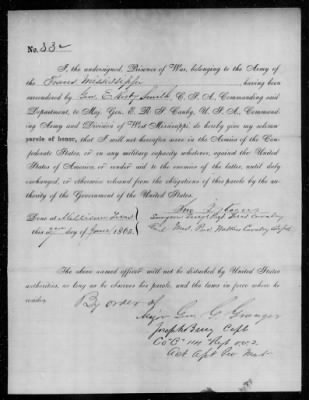 No. 332
I, the undersigned, Prisoner of War, belonging to the Army of
the Trans Mississippi, having been
surrendered by Gen. E. Kirby Smith, C. S. A., Commanding said
Department, to Maj. Gen. E. R. S. Canby, U. S. A., Command-
ing Army and Division of West Mississippi, do hereby give my solemn
parole of honor, that I will not hereafter serve in the Armies of the Con-
federate States, or in any military capacity whatever, against the United
States of America, or render aid to the enemies of the latter, until duly
exchanged, or otherwise released from the obligations of this parole by the au-
thority of the Government of the United States.
Surgeon Regt Cavalry
Done at Millican Texas
this 2nd day of June 1865.
The above named officer will not be disturbed by United States
authorities, so long as he observes his parole, and the laws in force where he
resides.
By order of
Major Gen G Granger
Joseph Capt
Co "C" 114 Regt O.V.I.
Act Asst Pro Mar